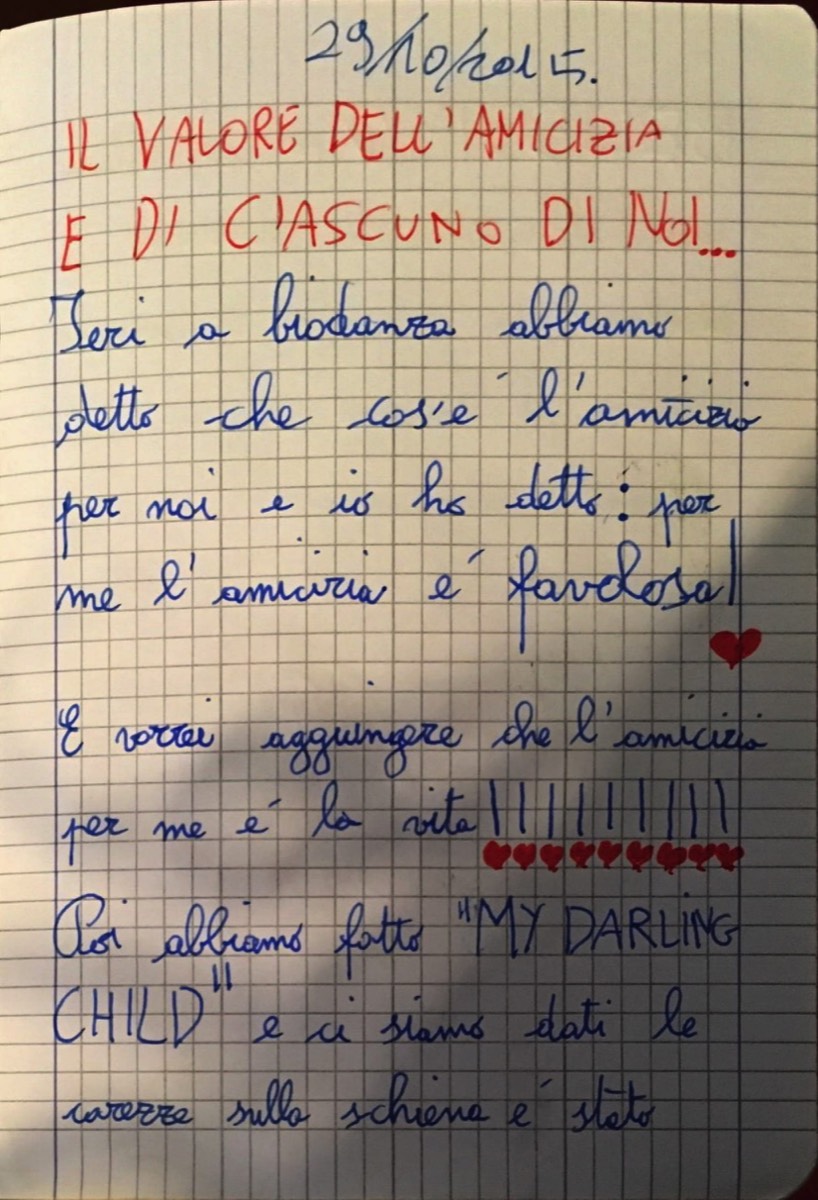 29/10/2015.
IL VALORE DELL'AMICIZIA
E DI C'ASCUNO DI NOI...
Ieri a biodanza abbiamo
detto che cos'e' l'amicizia
per noi e io ho detto: per
me l'amicizia e' favolosa!
E vorrei aggiungere che l'amicizia
per me e' la vita!!!!!!!!!!
Poi abbiamo fatto "MY DARLING
CHILD" e ci siamo dati le
carezze sulla schiena e' stato